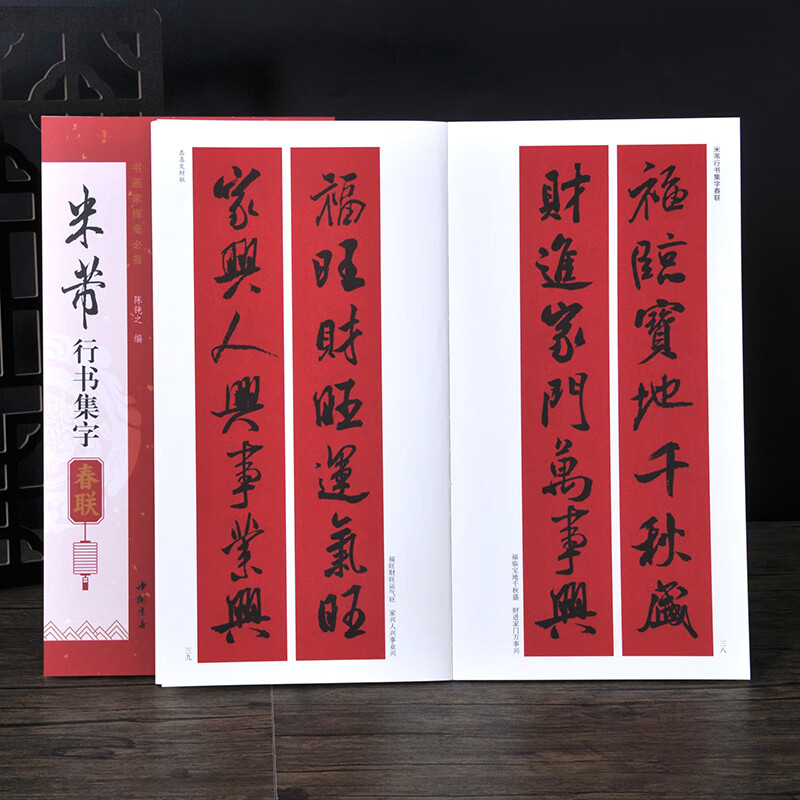 米芾
行书集字
春联
书画家挥毫必备
陈钝之 编
中国书店
米芾行书集字春联
福臨寳地千秋盛
財進家門萬事興
福临宝地千秋盛 财进家门万事兴
三八
恭喜发财联
福旺財旺運氣旺
家興人興事業興
福旺财旺运气旺 家兴人兴事业兴
三九